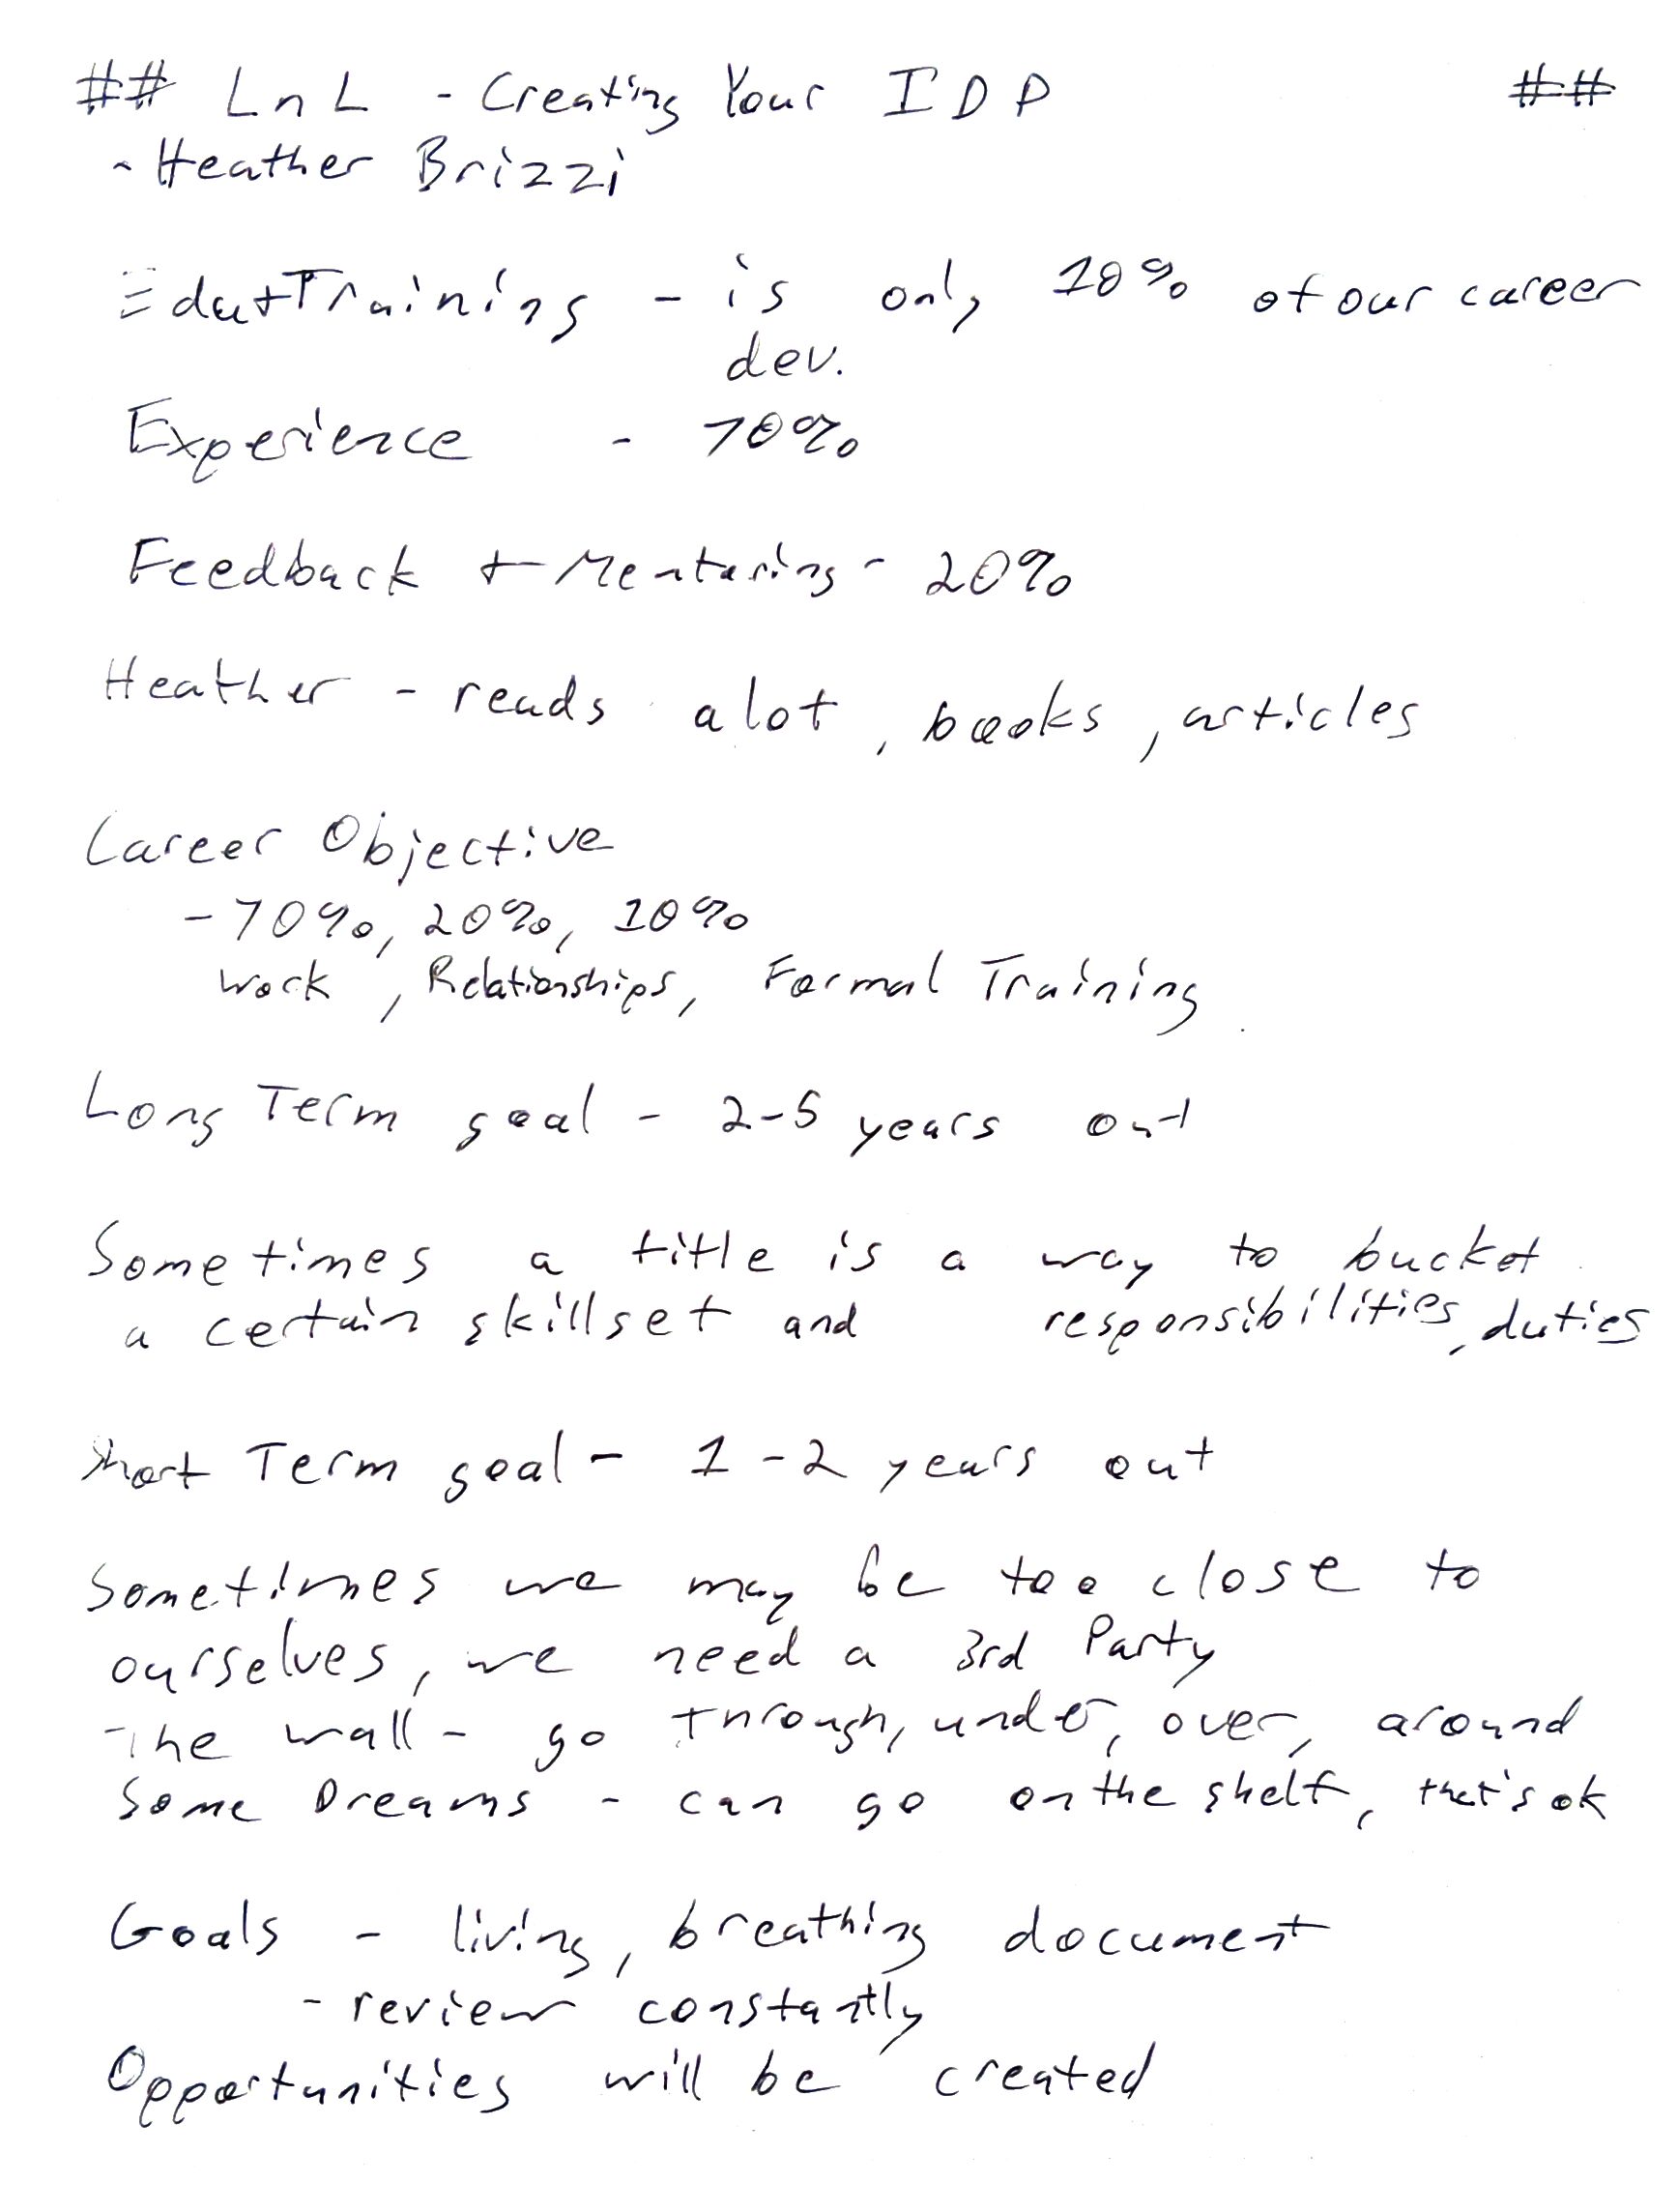 ## LnL - Creating Your IDP ##
- Heather Brizzi
Edu+Training - is only 10% of our career
dev.
Experience - 70%
Feedback + Mentoring - 20%
Heather - reads alot, books, articles
Career Objective
- 70%, 20%, 10%
Work, Relationships, Formal Training
Long Term goal - 2-5 years out
Sometimes a title is a way to bucket
a certain skillset and responsibilities, duties
Short Term goal - 1-2 years out
Sometimes we may be too close to
ourselves, we need a 3rd Party
The wall - go through, under, over, around
Some Dreams - can go on the shelf, that's ok
Goals - living, breathing document
- review constantly
Opportunities will be created